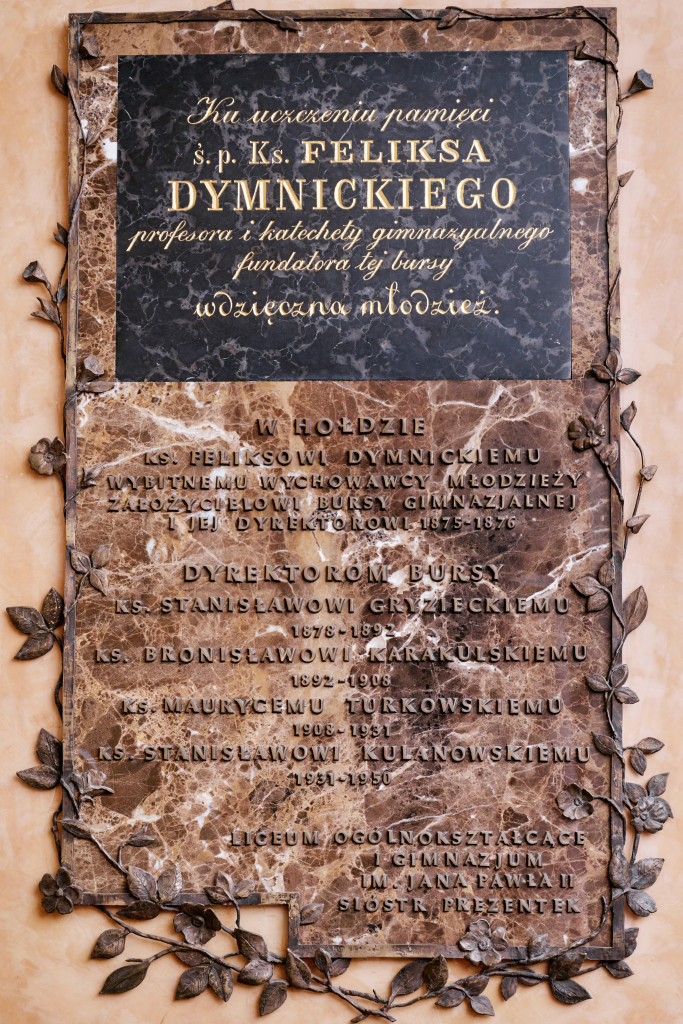 Ku uczczeniu pamięci
ś. p. Ks. FELIKSA
DYMNICKIEGO
profesora i katechety gimnazyalnego
fundatora tej bursy
wdzięczna młodzież.
W HOŁDZIE
KS. FELIKSOWI DYMNICKIEMU
WYBITNEMU WYCHOWAWCY MŁODZIEŻY
ZAŁOŻYCIELOWI BURSY GIMNAZJALNEJ
I JEJ DYREKTOROWI 1875-1876
DYREKTOROM BURSY
KS. STANISŁAWOWI GRYZIECKIEMU
1878-1892
KS. BRONISŁAWOWI KARAKULSKIEMU
1892-1908
KS. MAURYCEMU TURKOWSKIEMU
1908-1931
KS. STANISŁAWOWI KULANOWSKIEMU
1931-1950
LICEUM OGÓLNOKSZTAŁCĄCE
I GIMNAZJUM
IM. JANA PAWŁA II
SIÓSTR PREZENTEK